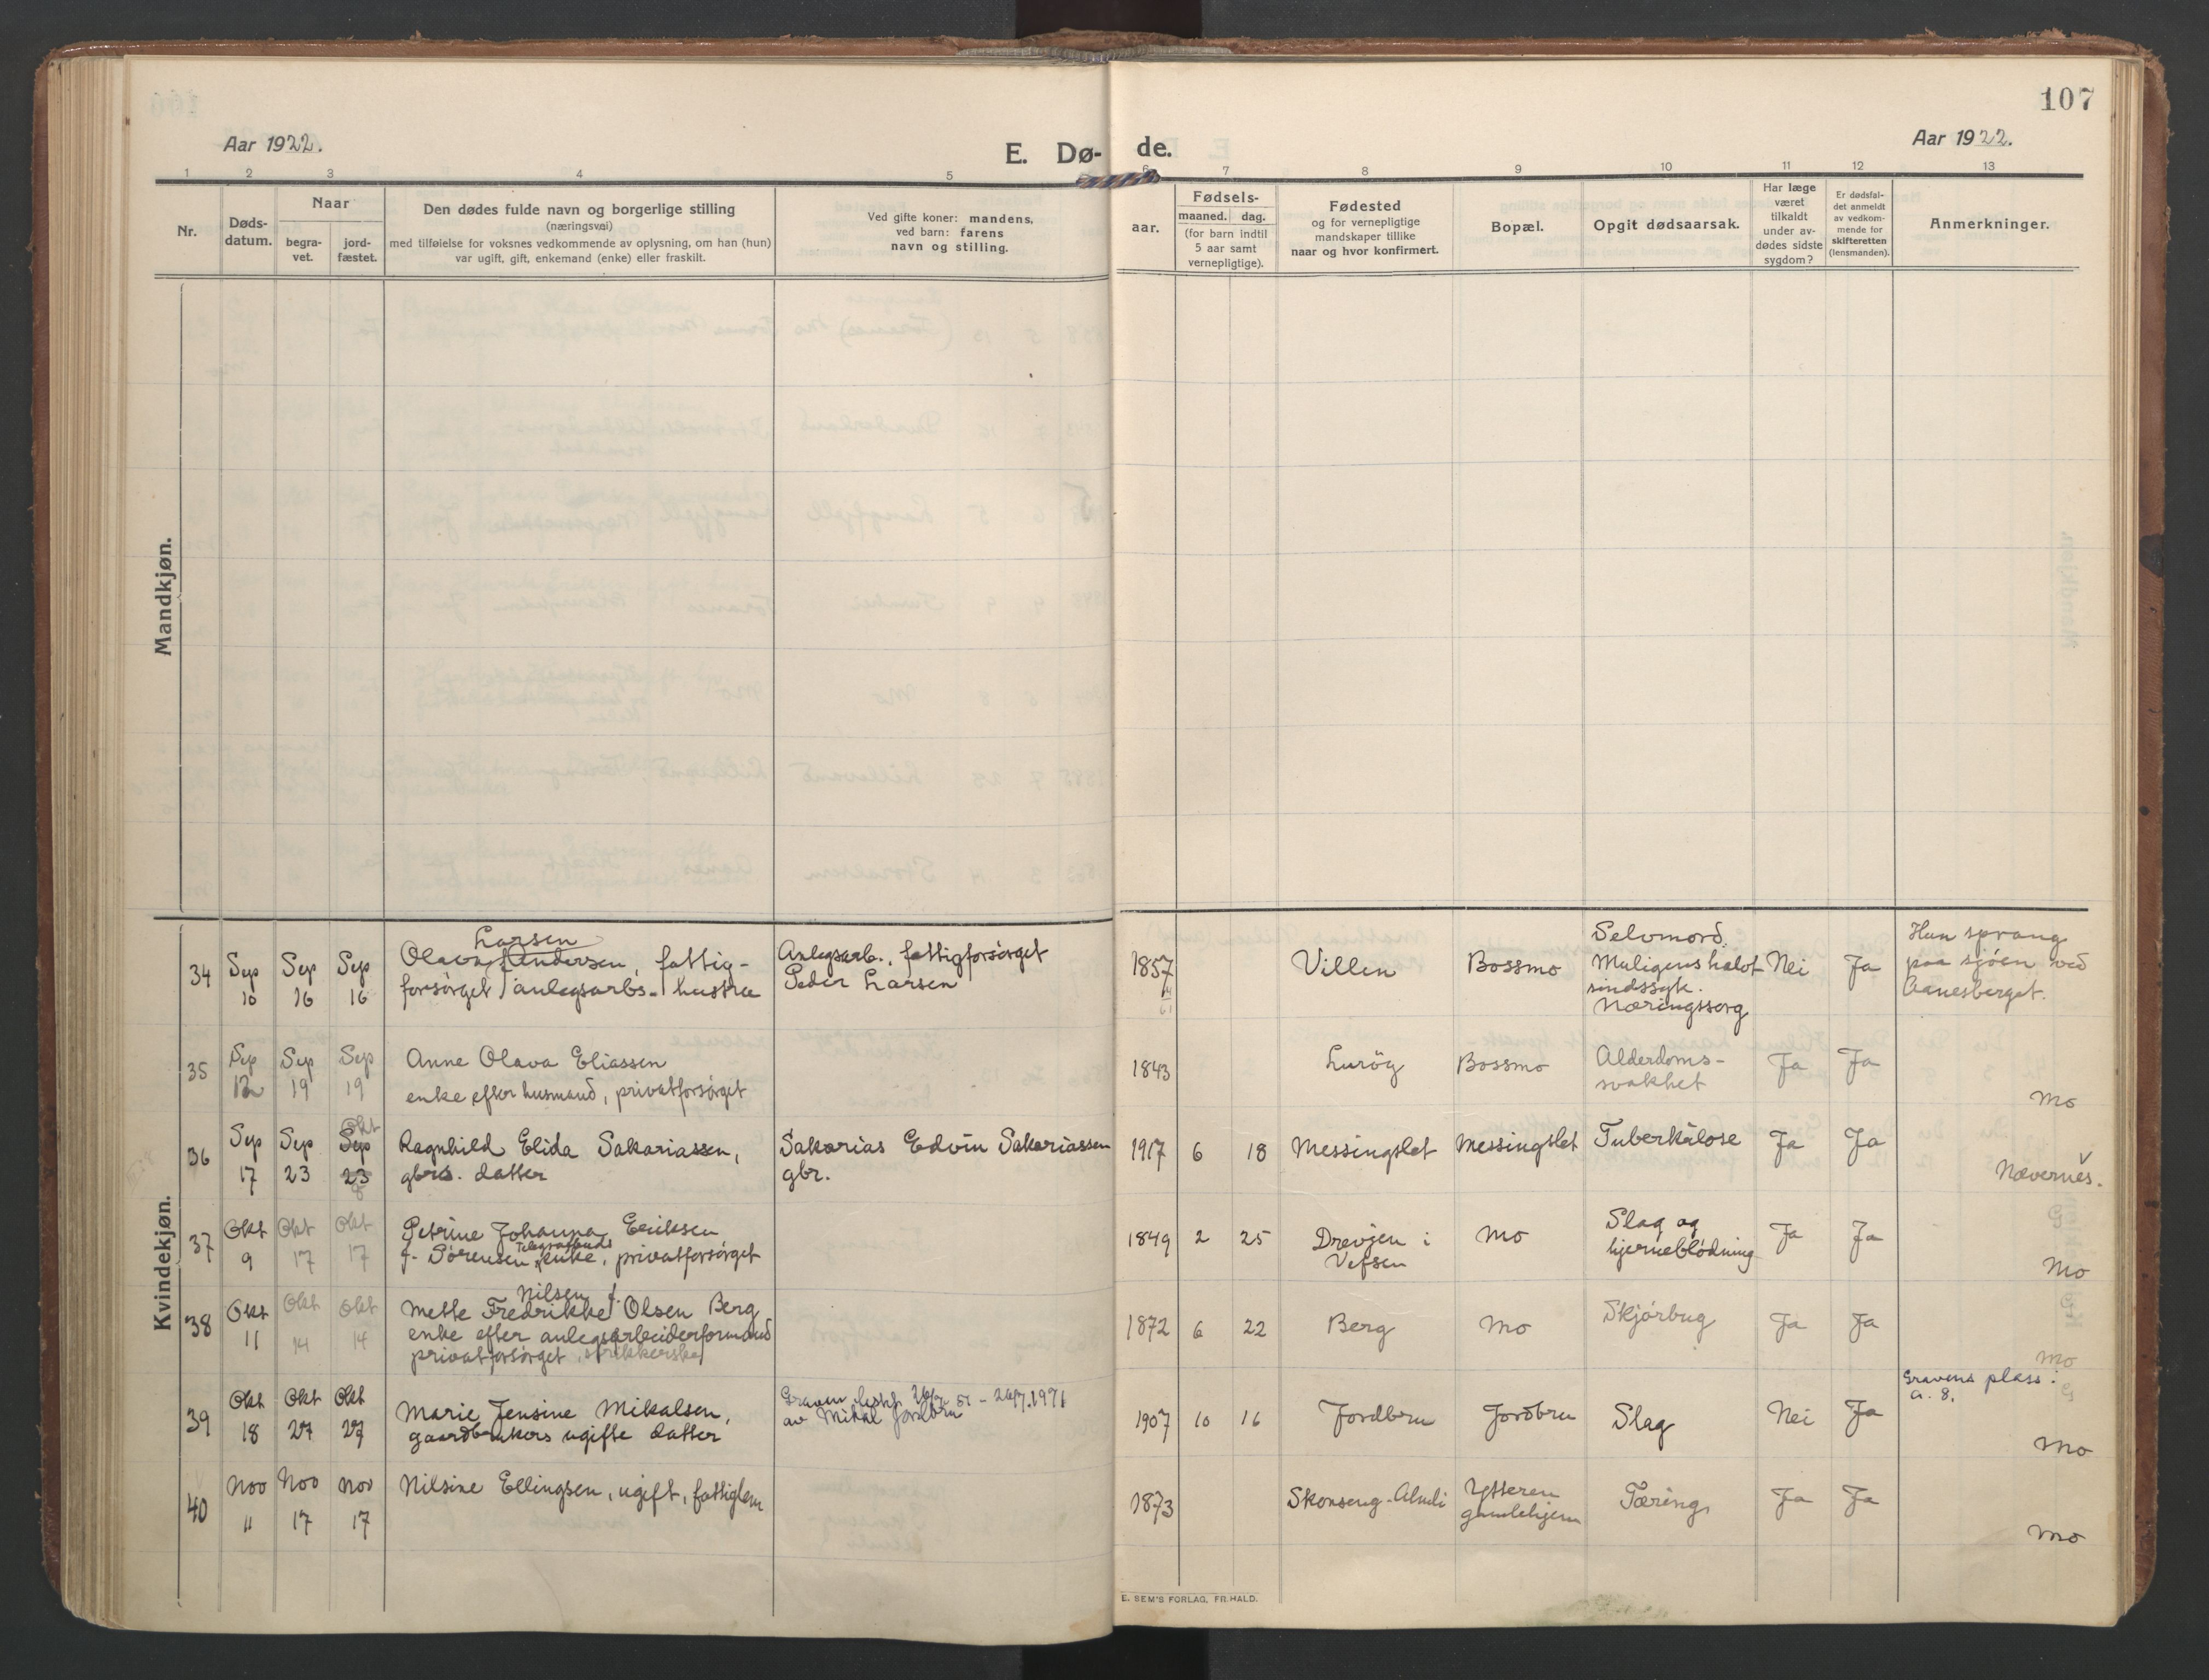 107
Aar 1922.
E. Dø-
de.
Aar 1922.
1 2 3 4 5 6 7 8 9 10 11 12 13
Nr.
Døds-
datum.
Naar
begra-
vet.
jord-
fæstet.
Den dødes fulde navn og borgerlige stilling
(næringsvei)
med tilføielse for voksnes vedkommende av oplysning, om han (hun)
var ugift, gift, enkemand (enke) eller fraskilt.
Ved gifte koner: mandens,
ved barn: farens
navn og stilling.
aar.
Fødsels-
maaned. dag.
(for barn indtil
5 aar samt
vernepligtige).
Fødested
og for vernepligtige
mandskaper tillike
naar og hvor konfirmert.
Bopæl.
Opgit dødsaarsak.
Har læge
været
tilkaldt
under av-
dødes sidste
sygdom?
Er dødsfal-
det anmeldt
av vedkom-
mende for
skifteretten
(lensmanden).
Anmerkninger.
Mandkjøn.
Kvindekjøn.
34
Sep
10
Sep
16
Sep
16
Larsen
Olava f. Andersen, fattig-
forsørget anlegsarbs. hustru
Anlegsarb., fattigforsørget
Peder Larsen
1857
Villen
Bossmo
Selvmord.
Muligens halvt
sindssyk.
Næringssorg
Nei
Ja
Hun sprang
paa sjøen ved
Aanesberget.
35
Sep
12
Sep
19
Sep
19
Anne Olava Eliassen
enke efter husmand, privatforsørget
1843
Lurøy
Bossmo
Alderdoms-
svakhet
Ja
Ja
Mo
36
Sep
17
Sep
23
Okt
Sep
23
8
Ragnhild Elida Sakariassen,
gbrs. datter
Sakarias Edvin Sakariassen
gbr.
1917 6 18
Messingslet
Messingslet
Tuberkulose
Ja
Ja
Nævernes.
37
Okt
9
Okt
17
Okt
17
Petrine Johanna Eriksen
f. Sørensen, enke, privatforsørget
1849 2 25
Drevjen i
Vefsen
Mo
Slag og
hjerneblødning
Ja
Ja
Mo
38
Okt
11
Okt
14
Okt
14
Nilsen f.
Mette Fredrikke Olsen Berg
enke efter anlegsarbeiderformand
privatforsørget, strikkerske
1872 6 22
Berg
Mo
Skjørbug
Ja
Ja
Mo
39
Okt
18
Okt
27
Okt
27
Marie Jensine Mikalsen,
gaardbrukers ugifte datter
Graven festet 51 - 1971
av Mikal Jordbru
1907 10 16
Jordbru
Jordbru
Slag
Nei
Ja
Gravens plass:
a. 8.
Mo
40
Nov
11
Nov
17
Nov
17
Nilsine Ellingsen, ugift, fattiglem
1873
Skonseng-Almli
Ytteren
gamlehjem
Tæring
Ja
Ja
Mo
E. SEM'S FORLAG, FR.HALD.